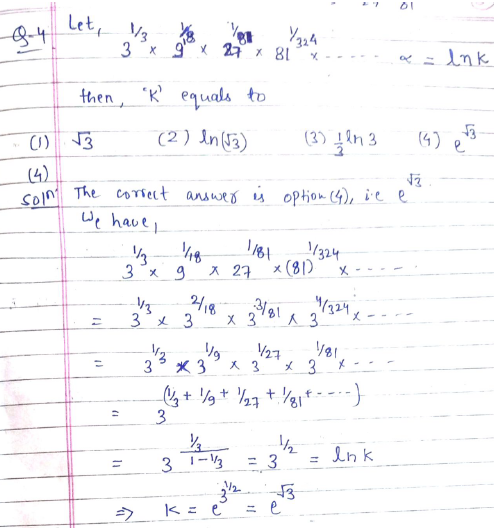 27 81
Q-4 Let, 3^{1/3} × 9^{1/18} × 27^{1/81} × 81^{1/324} × ...... ∝ = lnk
then, 'K' equals to
(1) √3 (2) ln(√3) (3) 1/3 ln 3 (4) e^{√3}
(4)
Solⁿ: The correct answer is option (4), i.e e^{√3}.
We have,
3^{1/3} × 9^{1/18} × 27^{1/81} × (81)^{1/324} × -----
= 3^{1/3} × 3^{2/18} × 3^{3/81} × 3^{4/324} × ----
= 3^{1/3} × 3^{1/9} × 3^{1/27} × 3^{1/81} × ---
= 3^{(1/3 + 1/9 + 1/27 + 1/81 + ----)}
= 3^{\frac{1/3}{1-1/3}} = 3^{1/2} = ln k
⇒ K = e^{3^{1/2}} = e^{√3}